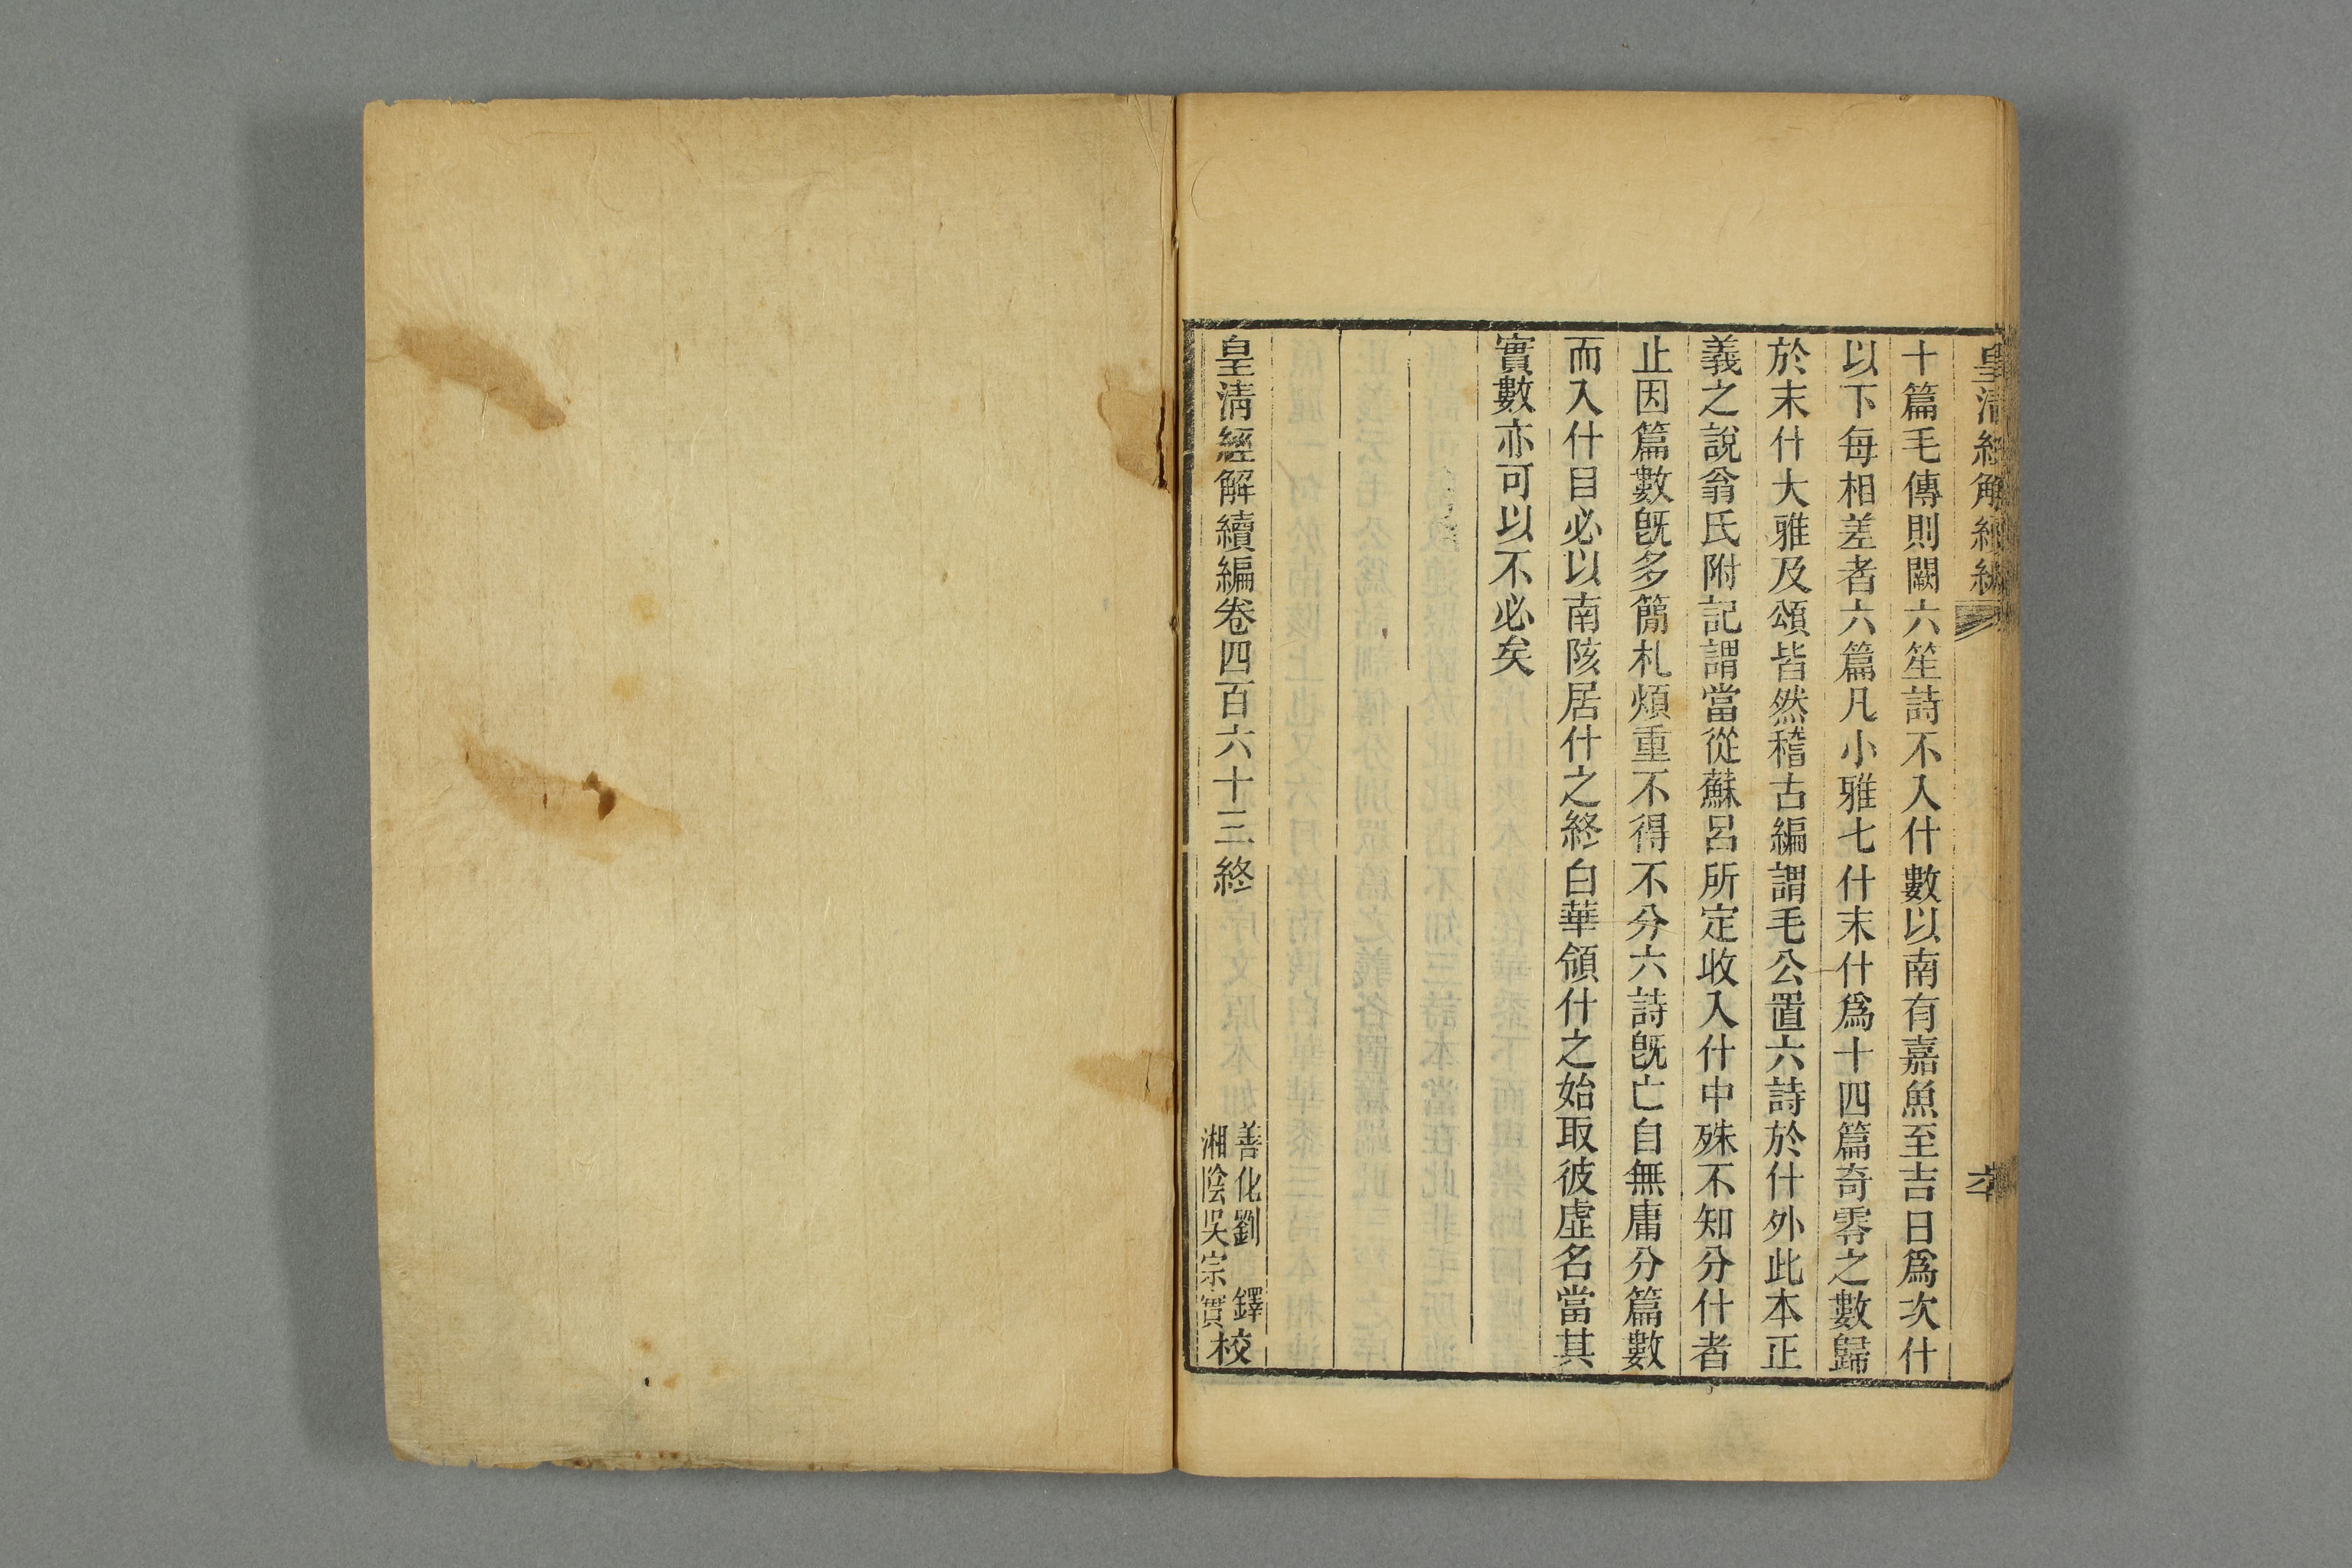 皇清經解續編
十篇毛傳則闕六笙詩不入什數以南有嘉魚至吉日爲次什
以下每相差者六篇凡小雅七什末什爲十四篇奇零之數歸
於末什大雅及頌皆然稽古編謂毛公置六詩於什外此本正
義之說翁氏附記謂當從蘇呂所定收入什中殊不知分什者
止因篇數旣多簡札煩重不得不分六詩旣亡自無庸分篇數
而入什目必以南陔居什之終白華領什之始取彼虛名當其
實數亦可以不必矣
皇清經解續編卷四百六十三終
善化劉鐸
湘陰吳宗實
校